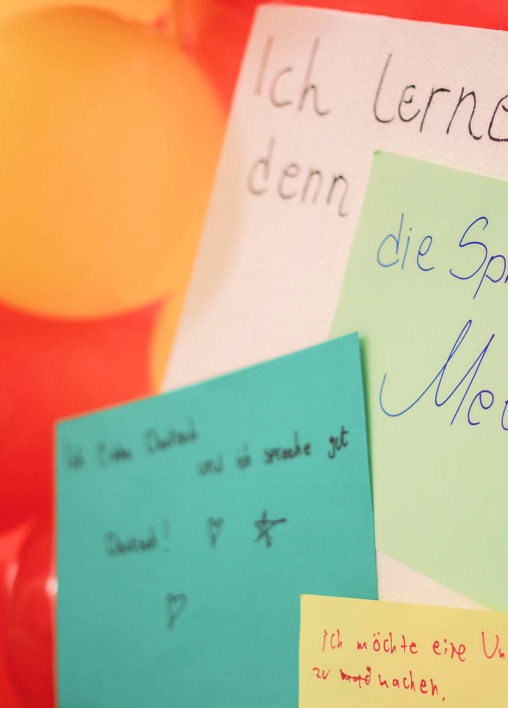 Ich lerne
denn
die Sp
Me
Ich liebe Deutsch
und ich spreche gut
Deutsch!
Ich möchte eine Un
zu machen.